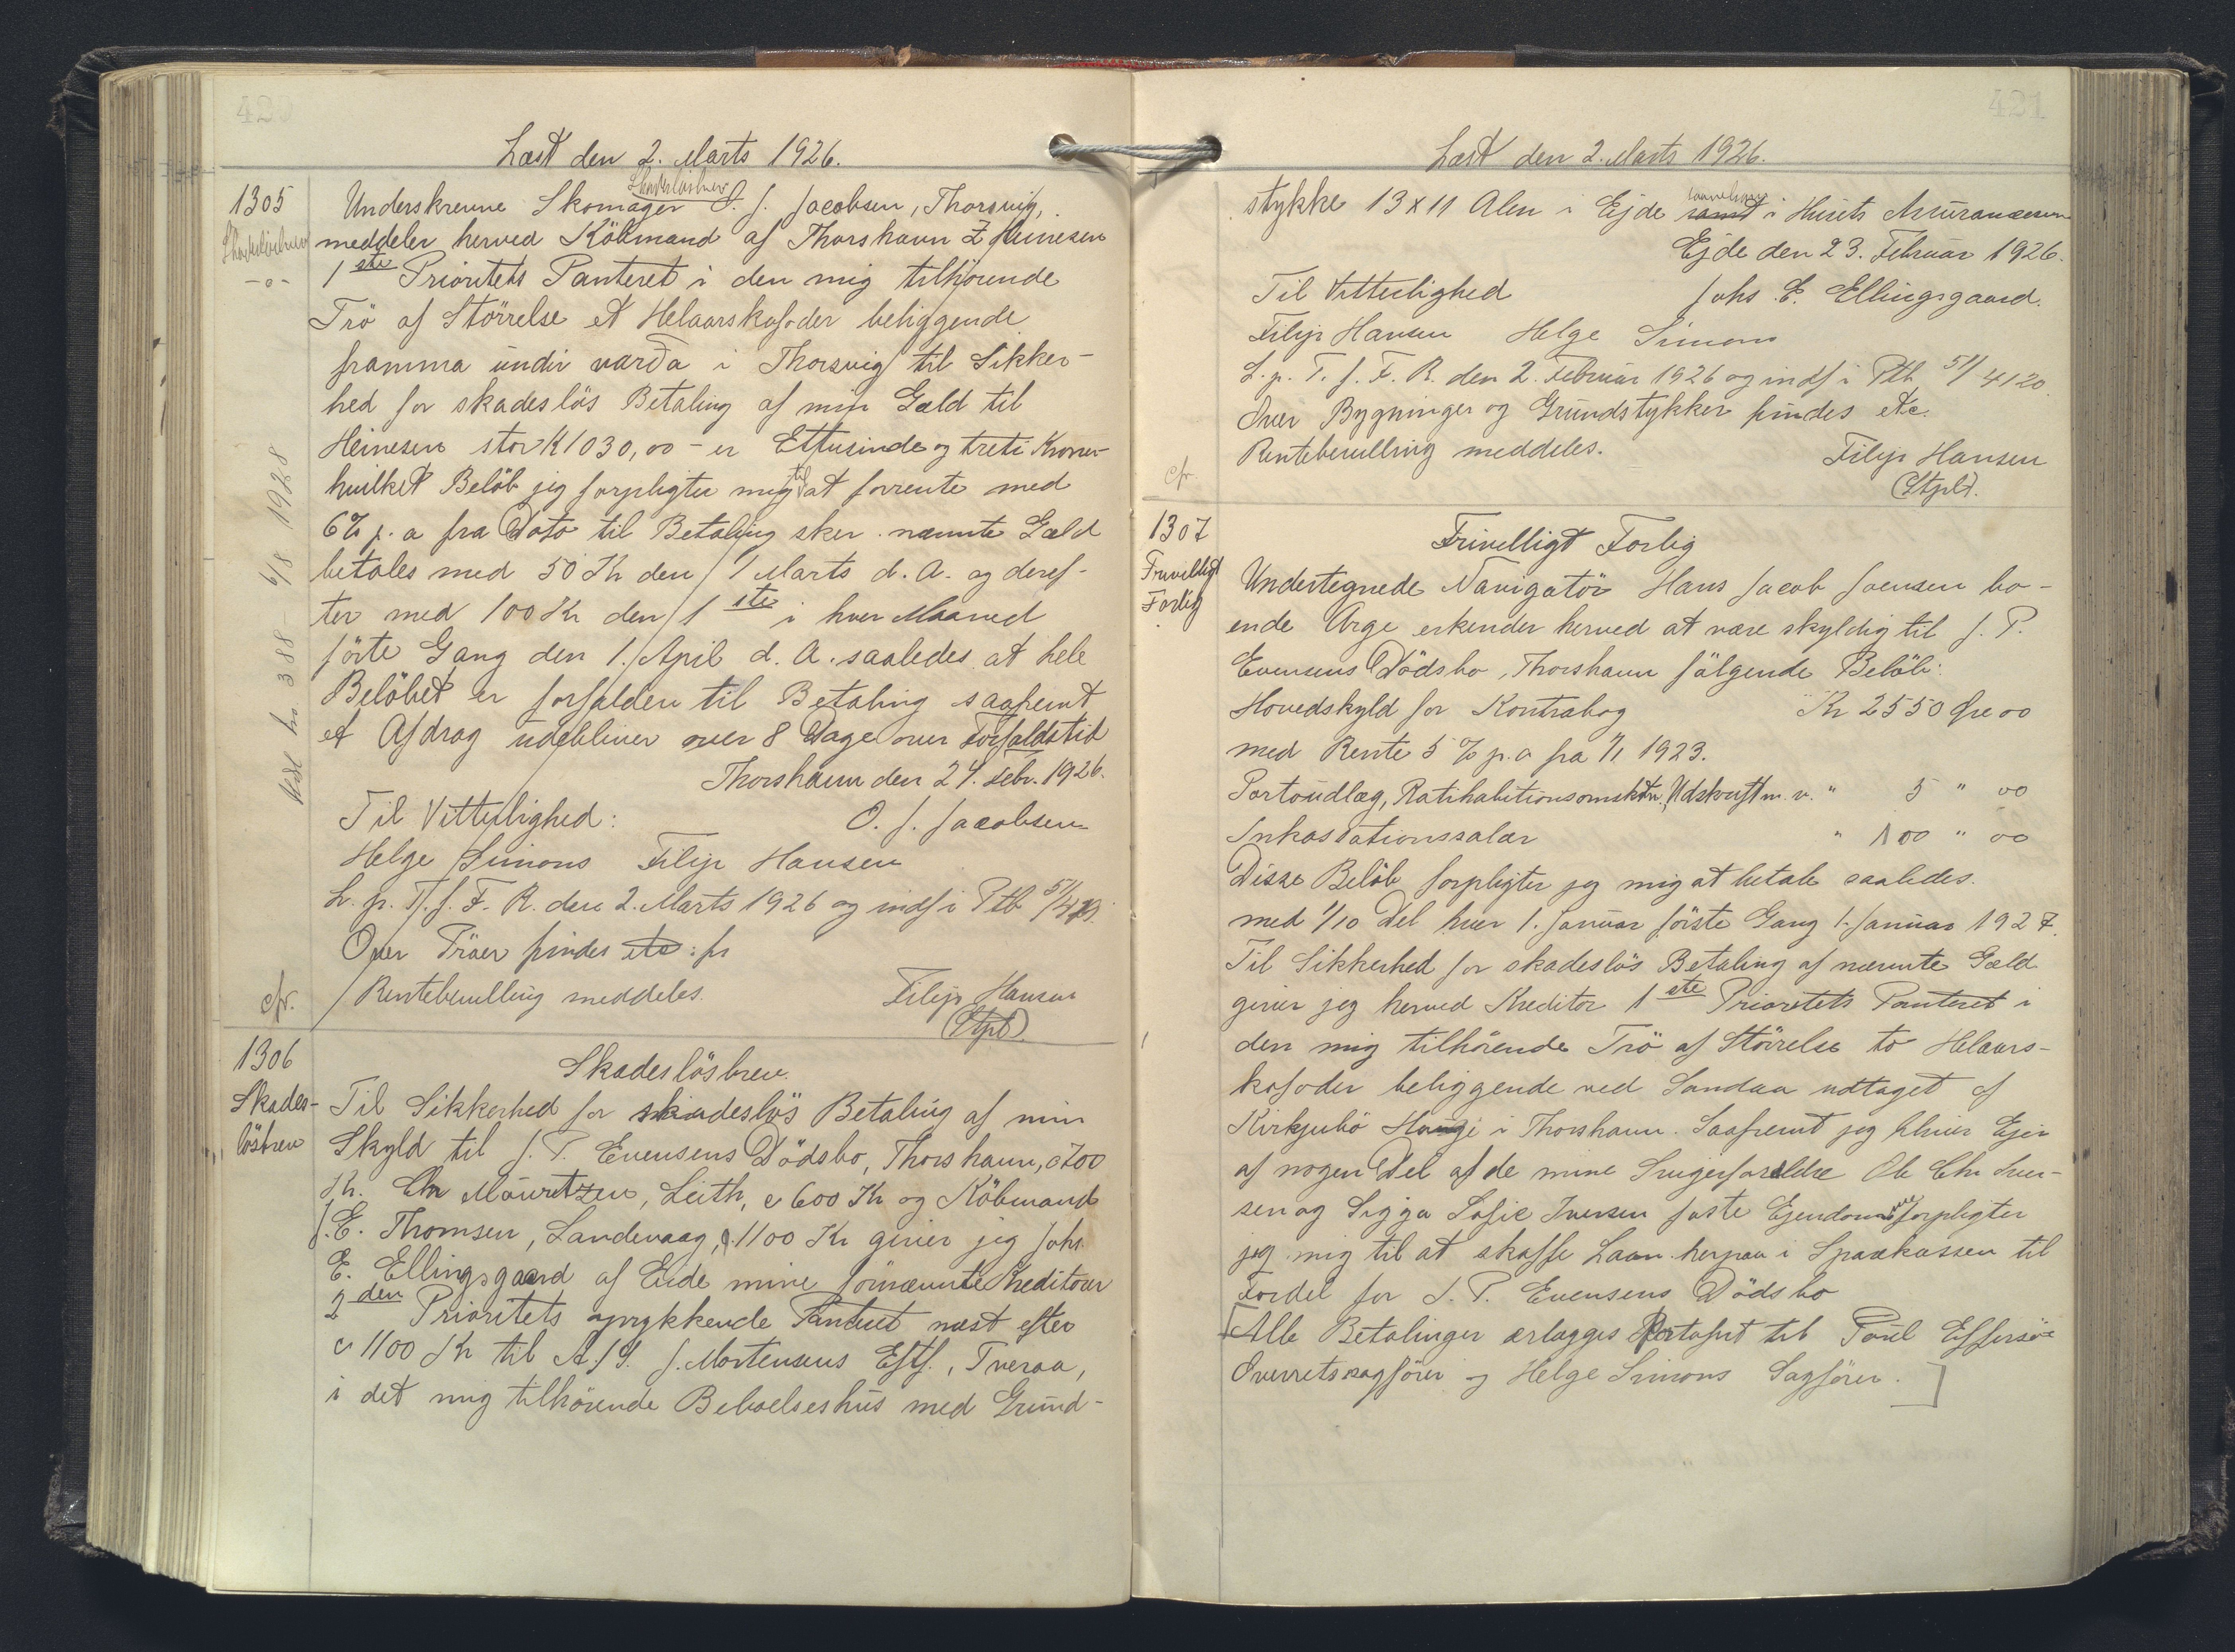 420
Læst den 2. Marts 1926.
1305
Skadeslösbrev
-o-
Skadeslösbrev
Underskrevne Skomager O. J. Jacobsen, Thorsvig,
meddeler herved Köbmand af Thorshavn Z Heinesen
1ste Prioritets Panteret i den mig tilhörende
Trö af Störrelse et Helaarskofoder beliggende
framma undir varða i Thorsvig til Sikker-
hed for skadeslös Betaling af min Gæld til
Heinesen stor K 1030,00 - er Ettusinde og treti Kroner-
hvilket Belöb jeg forpligter mig til at forrente med
6% p. a fra Dato til Betaling sker. nævnte Gæld
betales med 50 Kr den 1 Marts d. A. og deref-
ter med 100 Kr den 1ste i hver Maaned
förte Gang den 1. April d. A. saaledes at hele
Belöbet er forfalden til Betaling saafremt
et Afdrag udebliver over 8 Dage over Forfaldstid
Thorshavn den 24. Febr. 1926.
Til Vitterlighed: O. J. Jacobsen
Helge Simons Filip Hansen
L. p. T. f. F. R. den 2. Marts 1926 og indf i Ptb 51/
Over Tröer findes etc: fr
cfr. Rentebevilling meddeles. Filip Hansen
(Stpl).
388 - 6/8 1928
1306
Skades-
lösbrev
Skadeslösbrev.
Til Sikkerhed for skadeslös Betaling af min
Skyld til J. P. Evensens Dödsbo, Thorshavn, c 700
Kr. Chr Mouritzen, Leith, c 600 Kr og Köbmand
J. E. Thomsen, Sandevaag, c. 1100 Kr giver jeg Johs
E. Ellingsgaard af Eide mine fornævnte Kreditorer
2den Prioritets oprykkende Panteret næst efter
c 1100 Kr til A/S. J. Mortensens Eftf., Tveraa,
i det mig tilhörende Beboelseshus med Grund-
421
Læst den 2. Marts 1926.
stykke 13 x 11 Alen i Ejde samt i Husets Assurancesum
Ejde den 23. Februar 1926.
Til Vitterlighed Johs. E. Ellingsgaard.
Filip Hansen Helge Simons
L. p. T. f. F. R. den 2. Februar 1926 og indf i Ptb 51/4120
Over Bygninger og Grundstykker findes etc.
Rentebevilling meddeles. Filip Hansen
cfr (Stpl).
1307
Frivilligt
Forlig
Frivelligt Forlig
Undertegnede Navigatör Hans Jacob Joensen bo-
ende Arge erkender herved at være skyldig til J. P.
Evensens Dödsbo, Thorshavn fölgende Belöb:
Hovedskyld for Kontrabog Kr 2550 Øre 00
med Rente 5 % p. a fra 1/1 1923.
Portoudlæg, Ratihabitionsomkstn, Udskrift m. v. " 5 " 00
Inkassationssalær " 100 " 00
Disse Belöb forpligter jeg mig at betale saaledes.
med 1/10 Del hver 1. Januar förste Gang 1. Januar 1927.
Til Sikkerhed for skadeslös Betaling af nævnte Gæld
giver jeg herved Kreditor 1ste Prioritets Panteret i
den mig tilhörende Trö af Störrelse to Helaars-
kofoder beliggende ved Sandaa udtaget af
Kirkjubö Haugi i Thorshavn. Saafremt jeg bliver Ejer
af nogen Del af de mine Svigerforældre Ole Chr. Iver-
sen og Sigga Sofie Iversen faste Ejendomme forpligter
jeg mig til at skaffe Laan herpaa i Sparekassen til
Fordel for J. P. Evensens Dödsbo
[Alle Betalinger erlægges Portofrit til Poul Effersöe
Overretssagförer og Helge Simons Sagförer.]